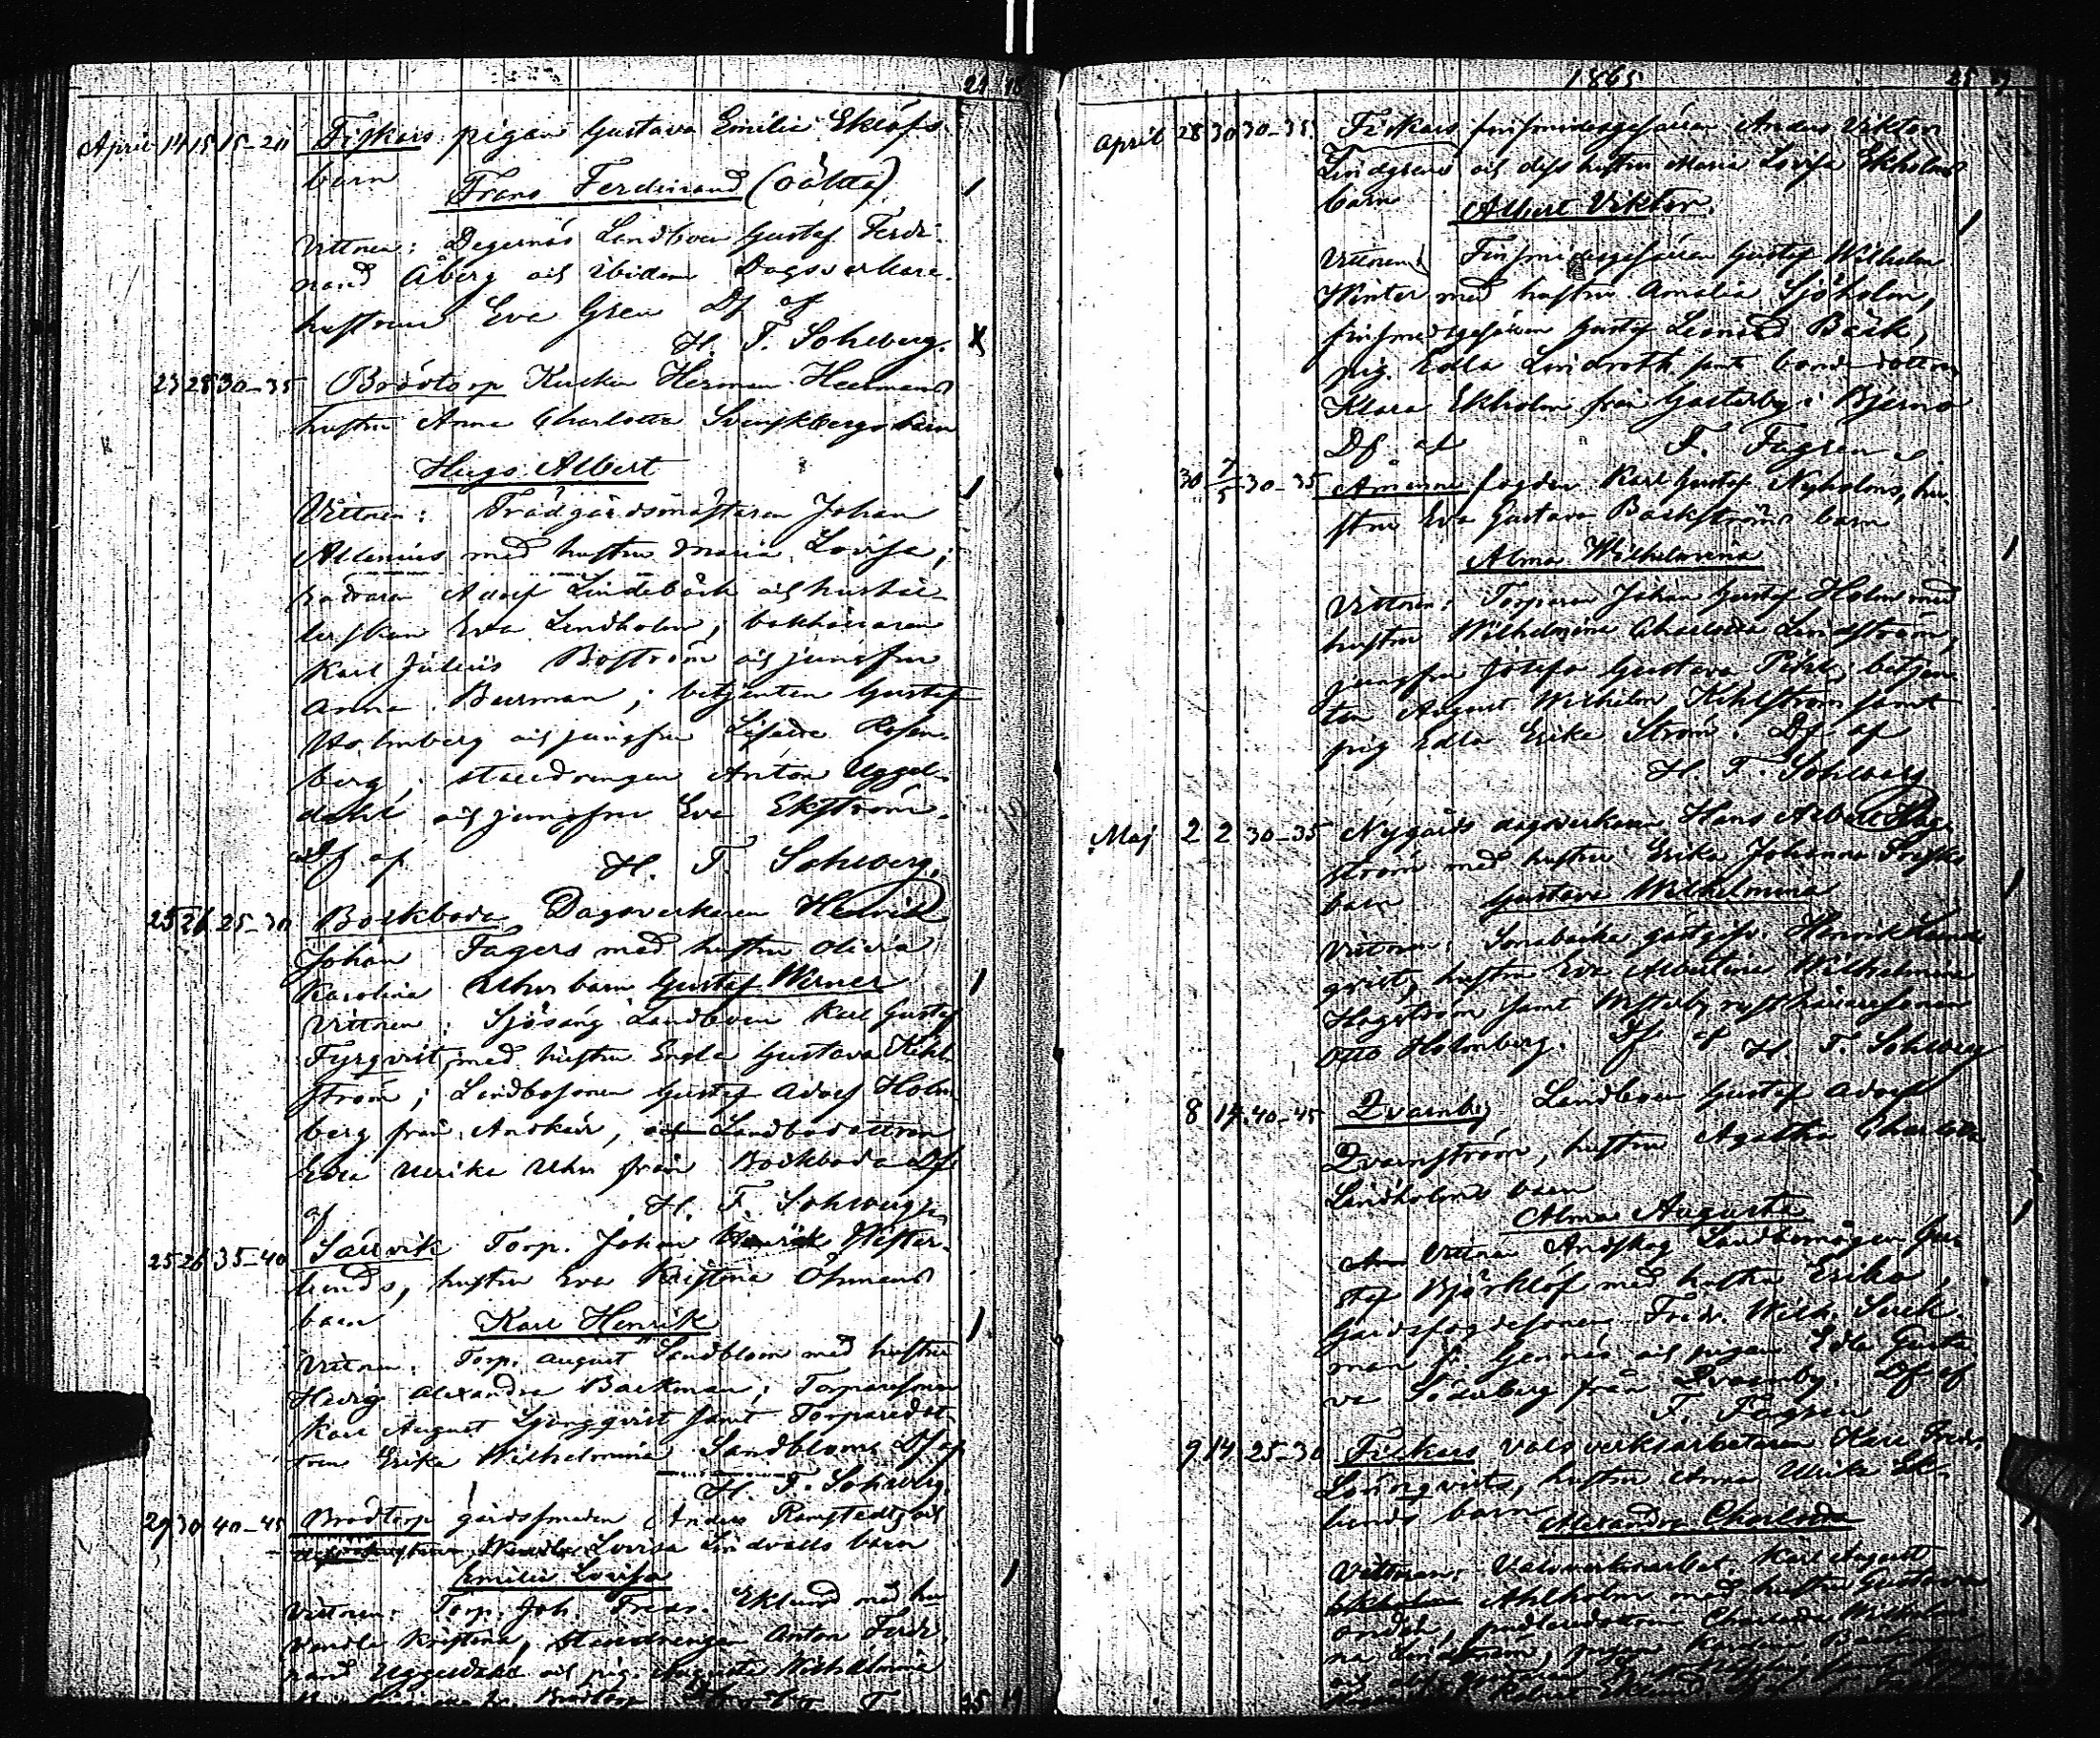 24 18
April 14 15 15-20 Fiskars pigan Gustava Emilia Eklöfs
barn Frans Ferdinand (oäkta)
Vittnen: Degernäs Landboen Gustaf Ferdi-
nand Åberg och ibidem Dagsverkare-
hustrun Eva Gren Df af
H. T. Sohlberg.
23 28 30-35 Brödtorp Kusken Herman Heermans
hustru Anna Charlotta Svenskbergs barn
Hugo Albert
Vittnen: Trädgårdsmästaren Johan
Allenius med hustru Maria Lovisa;
Adolf Lindebäck och hushål-
lerskan Eva Lindholm, bokhållaren
Karl Julius Boström och jungfru
Anna Burman; betjenten Gustaf
Holmberg och jungfru Rosen-
berg, stalldrengen Anton Uggel-
dahl och jungfru Eva Ekström.
Df af H. T. Sohlberg.
25 26 25-30 Bockboda Dagsverkaren Henrik
Johan Fagers med hustru Olivia
Karolina Uhrs barn Gustaf Werner
Vittnen: Sjösäng Landboen Karl Gustaf
Fyrqvist, med hustru Engla Gustava Kihl-
ström; Landbosonen Gustaf Adolf Holm-
berg från Anskär, Landbodottren
Eva Ulrika Uhr från Bockboda Df
af H. T. Sohlberg
25 26 35-40 Sällvik Torp. Johan Henrik Wester-
lunds, hustru Eva Kristina Öhmans
barn Karl Henrik
Vittnen: Torp. August Sandblom med hustru
Hedvig Alexandra Backman; Torparesonen
Karl August Ljungqvist samt Torparedot-
tren Erika Wilhelmina Sandblom. Df af
H. T. Sohlberg
29 30 40-45 Brödtorp gårdssmeden Anders Ramstedts och
Lovisa Lindvalls barn
Emilia Lovisa
Vittnen: Torp. Joh. Fredr. Eklund med hu
Vendla Kristina, stalldrengen Anton Ferdi-
nand Uggeldahl och pig. Augusta Wilhelmina
25 19
1865 25 19
April 28 30 30-35 Fiskars finsmidesgesällen Anders Viktor
Lindgrens och dess hustru Maria Lovisa Ekholms
barn Albert Viktor.
Vittnen: Finsmidesgesällen Gustaf Wilhelm
Winter med hustru Amalia Sjöholm,
finsmidsgesällen Gustaf Leonard Bäck,
pig. Edla Lindroth samt bonde dottren
Klara Ekholm från Gästerby i Bjerno
Df af F. Fagren.
30 7/5 30-35 Åminne fogden Karl Gustaf Nyholms, hu-
stru Eva Gustava Backströms barn
Alma Wilhelmina
Vittnen: Torparen Johan Gustaf Holm med
hustru Wilhelmina Charlotta Lindström,
jungfru Josefa Gustava Pihl; betjen-
ten August Wilhelm Kihlström samt
pig Edla Erika Ström. Df af
H. T. Sohlberg
Maj 2 2 30-35 Nygårds dagsverkaren Hans Albert Hag-
ström med hustru Erika Johanna
barn Gustava Wilhelmina
Vittnen: gästgifv. Henrik
qvist, hustru Eva Albertina Wilhelmina
Hagström samt Westerby rusthållaresonen
Otto Holmberg. Df af H. T. Sohlberg
8 14 40-45 Qvarnby Landboen Gustaf Adolf
Qvarnström, hustru Agatha Charlotta
Lindholms barn
Alma Augusta
Vittnen Anskog Landbomågen Gu-
staf Björklöf med hustru Erika,
Gårdsfogdesonen Fredr. Wilh.
man fr. Gennäs och pigan Edla Gusta-
va Söderberg från Qvarnby. Df af
F. Fagren
9 14 25-30 Fiskars valsverksarbetaren Karl Fredr.
Löfqvists, hustru Anna Ulrika Ek-
lunds barn Alexandra Charlotta
Vittnen: Valsverksarbet. Karl August
Ahlholm med hustru Gustava
Charlotta Wilhelmi-
na Lindström, pigan Karolina
Robert Eklund